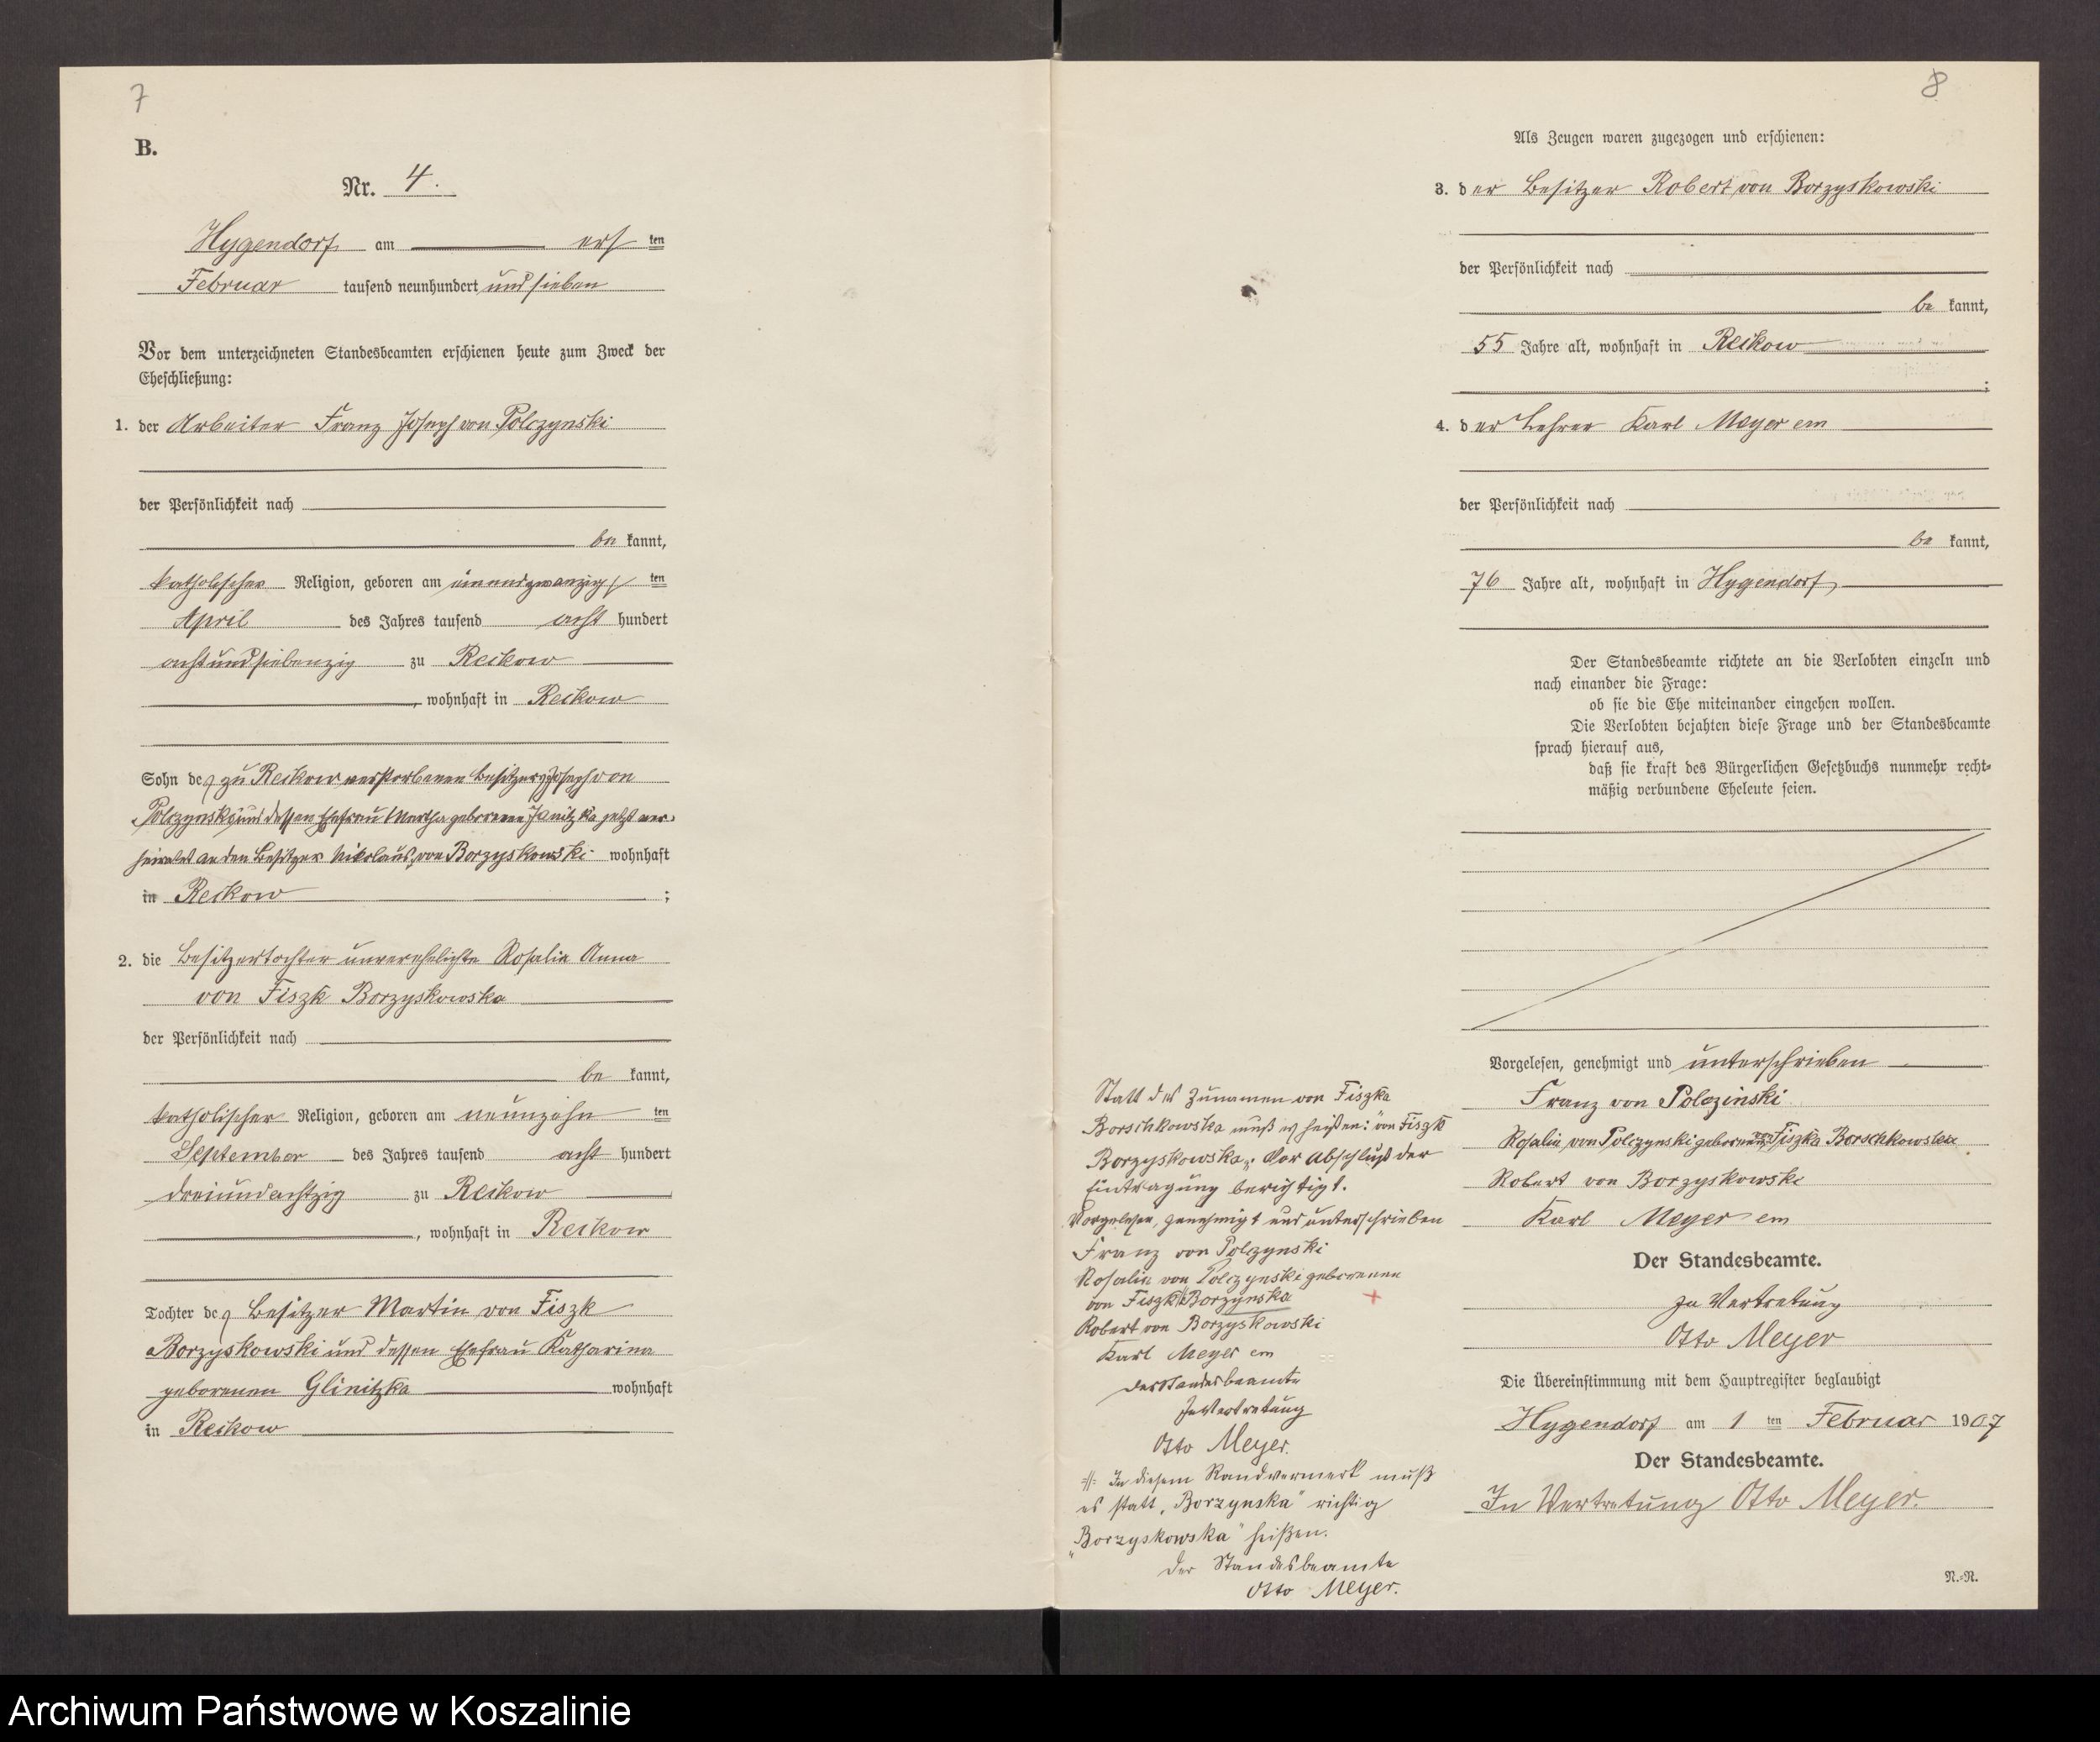 7
B.
Nr. 4.
Hygendorf am erſten
Februar tauſend neunhundert und ſieben
Vor dem unterzeichneten Standesbeamten erſchienen heute zum Zweck der
Eheſchließung:
1. der Arbeiter Franz Joseph von Polczynski
der Perſönlichkeit nach
be kannt,
katholischer Religion, geboren am einundzwanzigſten
April des Jahres tauſend acht hundert
achtundſiebenzig zu Reikow
, wohnhaft in Reikow
Sohn des zu Reikow verstorbenen Besitzers Joseph von
Polczynski und deſſen Ehefrau Martha geborenen Janitzka jetzt ver-
heiratet an den Besitzer Nikolaus von Borzyskowski wohnhaft
in Reikow ;
2. die Besitzertochter unverehelichte Rosalia Anna
von Fiszk Borzyskowska
der Perſönlichkeit nach
be kannt,
katholischer Religion, geboren am neunzehn ten
September des Jahres tauſend acht hundert
dreiundachtzig zu Reikow
, wohnhaft in Reikow
Tochter des Besitzer Martin von Fiszk
Borzyskowski und deſſen Ehefrau Katharina
geborenen Glinitzka wohnhaft
in Reikow
8
Als Zeugen waren zugezogen und erſchienen:
3. der Besitzer Robert von Borzyskowski
der Perſönlichkeit nach
be kannt,
55 Jahre alt, wohnhaft in Reikow
;
4. der Lehrer Karl Meyer em
der Perſönlichkeit nach
be kannt,
76 Jahre alt, wohnhaft in Hygendorf
Der Standesbeamte richtete an die Verlobten einzeln und
nach einander die Frage:
ob ſie die Ehe miteinander eingehen wollen.
Die Verlobten bejahten dieſe Frage und der Standesbeamte
ſprach hierauf aus,
daß ſie kraft des Bürgerlichen Geſetzbuchs nunmehr recht-
mäßig verbundene Eheleute ſeien.
Vorgeleſen, genehmigt und unterschrieben
Franz von Polczinski
Rosalia von Polczynski geborenen von Fiszka Borschkowska
Robert von Borzyskowski
Karl Meyer em
Der Standesbeamte.
In Vertretung
Otto Meyer
Die Übereinſtimmung mit dem Hauptregiſter beglaubigt
Hygendorf am 1 ten Februar 1907
Der Standesbeamte.
In Vertretung Otto Meyer.
N.-N.
Statt des Zunamen von Fiszka
Borschkowska muß es heißen: "von Fiszk
Borzyskowska". Vor Abschluß der
Eintragung berichtigt.
Vorgelesen, genehmigt und unterschrieben
Franz von Polczynski
Rosalia von Polczynski geborenen
von Fiszk Borzynska
Robert von Borzyskowski
Karl Meyer em
Der Standesbeamte
In Vertretung
Otto Meyer.
In diesem Randvermerk muß
es statt „Borzynska" richtig
„Borzyskowska" heißen.
Der Standesbeamte
Otto Meyer.
Archiwum Państwowe w Koszalinie